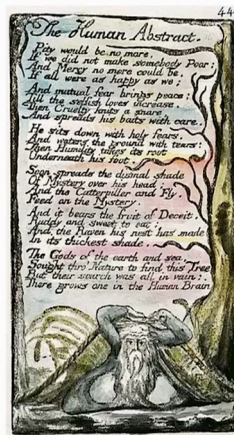 44
The Human Abstract.
Pity would be no more,
If we did not make somebody Poor:
And Mercy no more could be,
If all were as happy as we;
And mutual fear brings peace:
Till the selfish loves increase.
Then Cruelty knits a snare,
And spreads his baits with care.
He sits down with holy fears,
And waters the ground with tears:
Then Humility takes its root
Underneath his foot.
Soon spreads the dismal shade
Of Mystery over his head;
And the Catterpiller and Fly,
Feed on the Mystery.
And it bears the fruit of Deceit,
Ruddy and sweet to eat:
And the Raven his nest has made
In its thickest shade.
The Gods of the earth and sea,
Sought thro' Nature to find this Tree
But their search was all in vain:
There grows one in the Human Brain